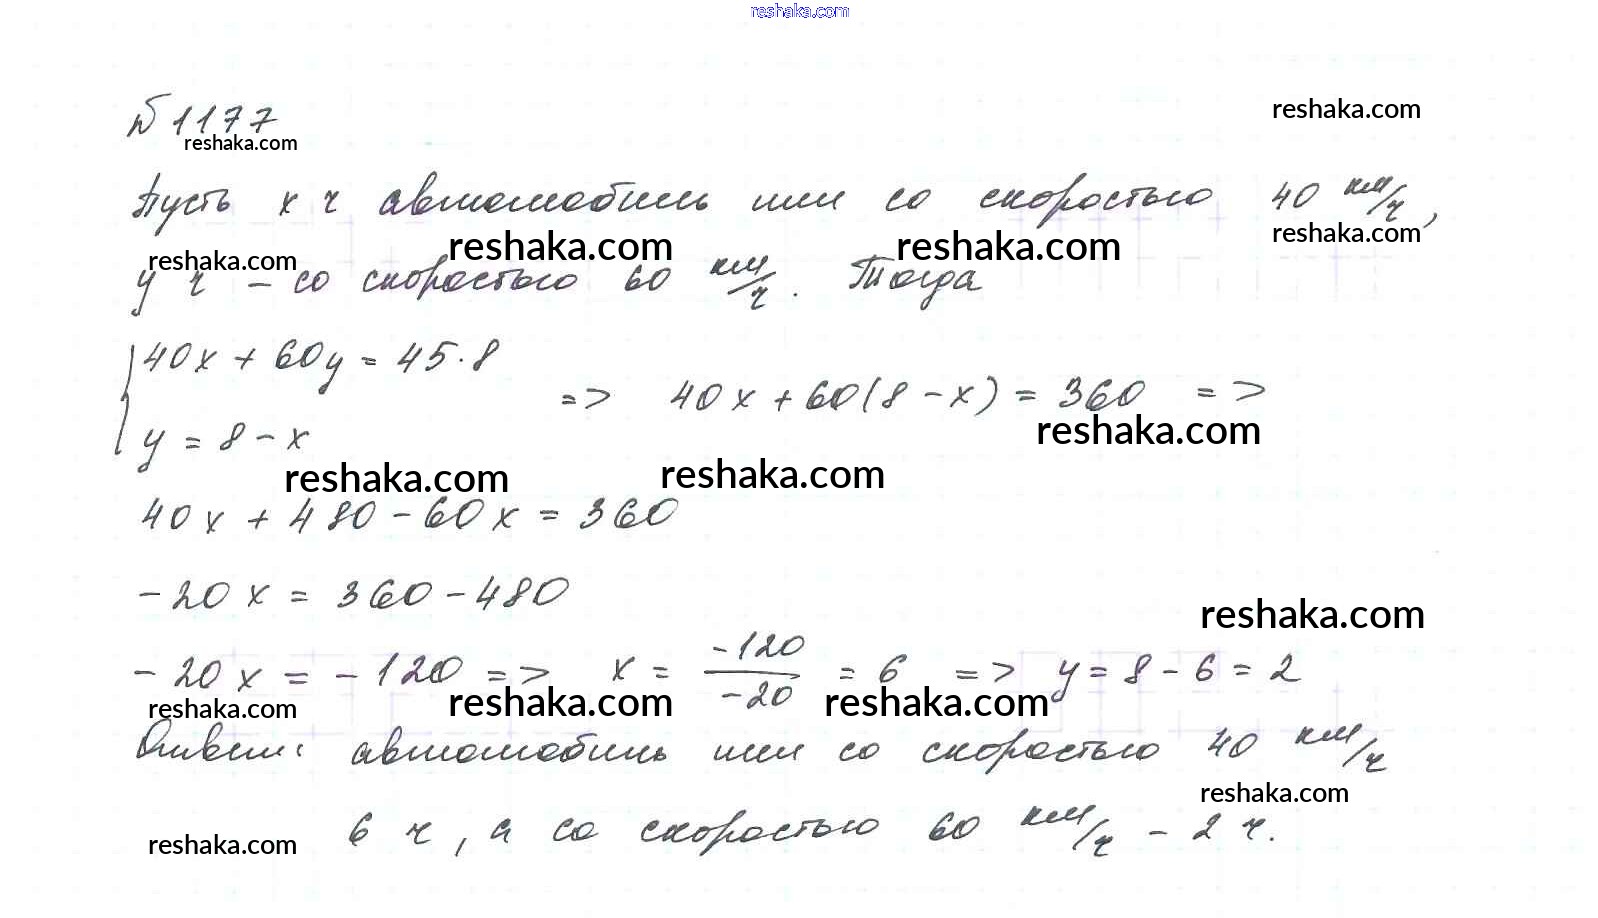 reshaka.com
№ 1177
reshaka.com
reshaka.com
Пусть x ч автомобиль шел со скоростью 40 км/ч,
reshaka.com
reshaka.com
reshaka.com
reshaka.com
y ч – со скоростью 60 км/ч. Тогда
40x + 60y = 45·8
y = 8 - x
=> 40x + 60(8 - x) = 360 =>
reshaka.com
reshaka.com
reshaka.com
40x + 480 - 60x = 360
-20x = 360 - 480
reshaka.com
-20x = -120 => x = -120/-20 = 6 => y = 8 - 6 = 2
reshaka.com
reshaka.com
reshaka.com
Ответ: автомобиль шел со скоростью 40 км/ч
reshaka.com
6 ч, а со скоростью 60 км/ч – 2 ч.
reshaka.com